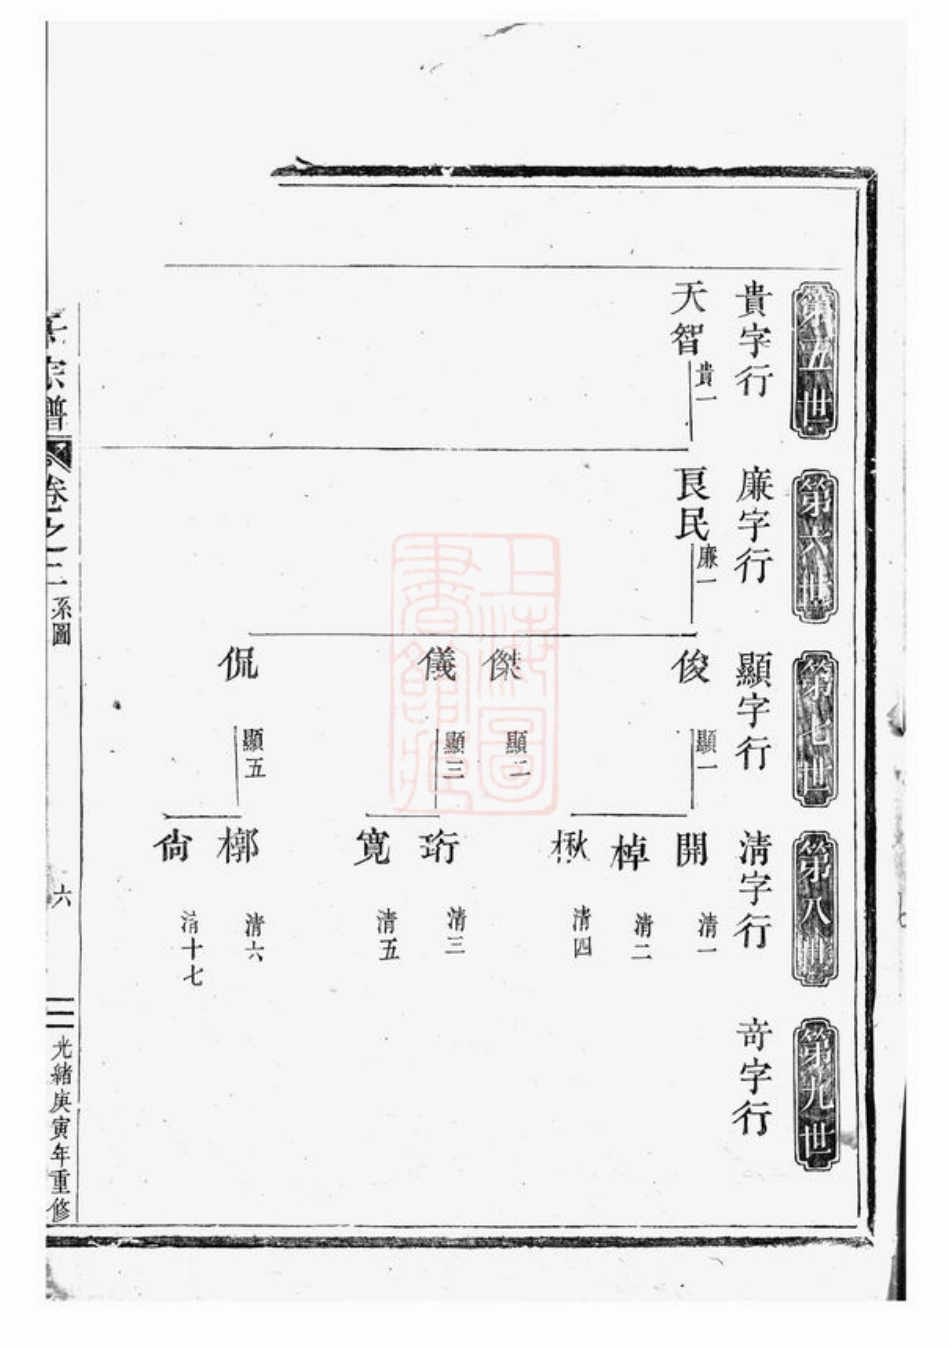 第五世
第六世
第七世
第八世
第九世
貴字行
廉字行
顯字行
清字行
奇字行
天智
貴一
良民
廉一
俊
顯一
傑
顯二
儀
顯三
侃
顯五
開
清一
棹
清二
楸
清四
珩
清三
寬
清五
槨
清六
尙
清十七
宗譜
卷之二
系圖
六
光緒庚寅年重修
上海圖書館藏